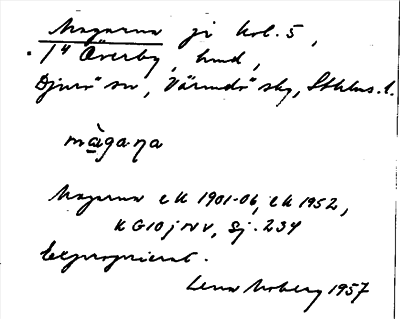 Magarna jr kol. 5,
1⁴ Överby, hmd,
Djurö sn, Värmdö skg, Sthlms l.
màgaṇa
Magarna ek 1901-06, ek 1952,
KG10jNV, Sj. 234
Exproprierat.
Lena Moberg 1957